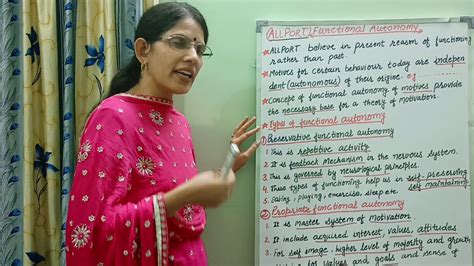 (ALLPORT) Functional Autonomy
★ ALLPORT believe in present reason of functioning
rather than past.
★ Motives for certain behaviours today are indepen
dent (autonomous) of their origine. eg.
★ Concept of functional autonomy of motives provide
the necessary base for a theory of motivation.
★ Types of functional autonomy
① Preservative functional autonomy
1. This is repetitive activity
2. It is feedback mechanism in the nervous system.
3. This is governed by neurological principles.
4. These types of functioning help us in self preserving
self maintaining
5. Eating, playing, exercise, sleep etc.
② Propriate functional autonomy
1. It is master system of motivation.
2. It include acquired interest, values, attitudes
3. For self image, higher level of maturity and growth
for values and goals and sense of